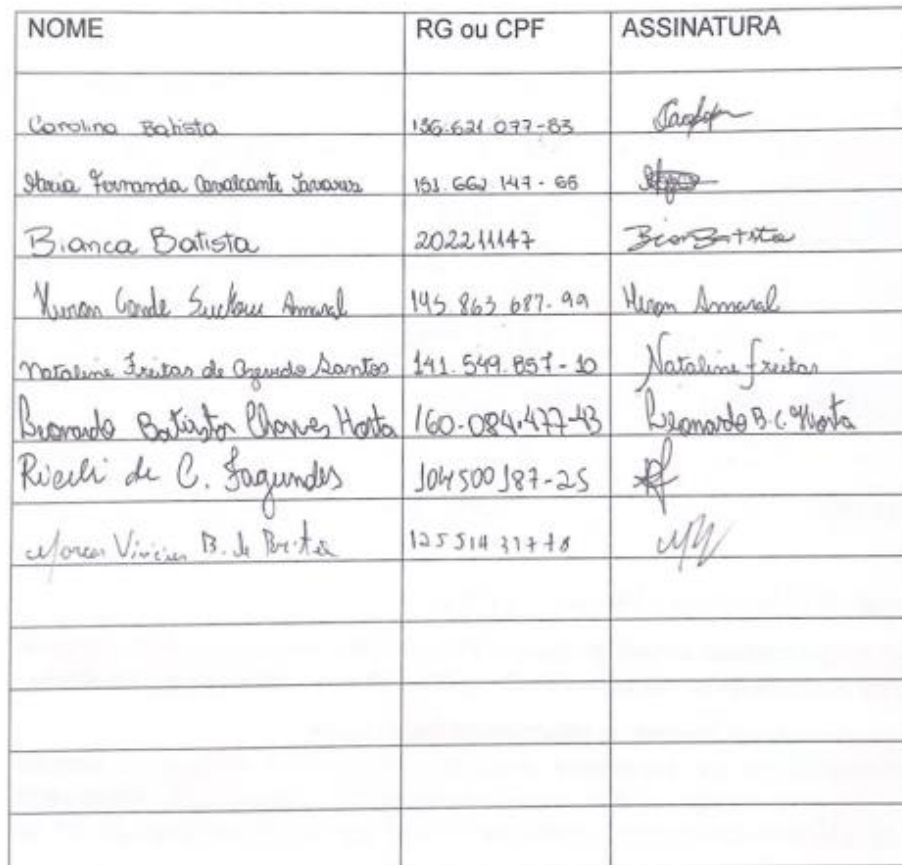 NOME RG ou CPF ASSINATURA
Carolina Batista 136.621.077-83
Maria Fernanda Cavalcante Tavares 151.662.147-66
Bianca Batista 202211147
Conde Amaral 145.863.687-99 Amaral
Nataline Freitas de Azevedo Santos 141.549.857-10 Nataline Freitas
Leonardo Batista Chaves Horta 160.084.477-43 Leonardo B. C. Horta
de C. Fagundes 104500187-25
Marcos Vinicius B. de